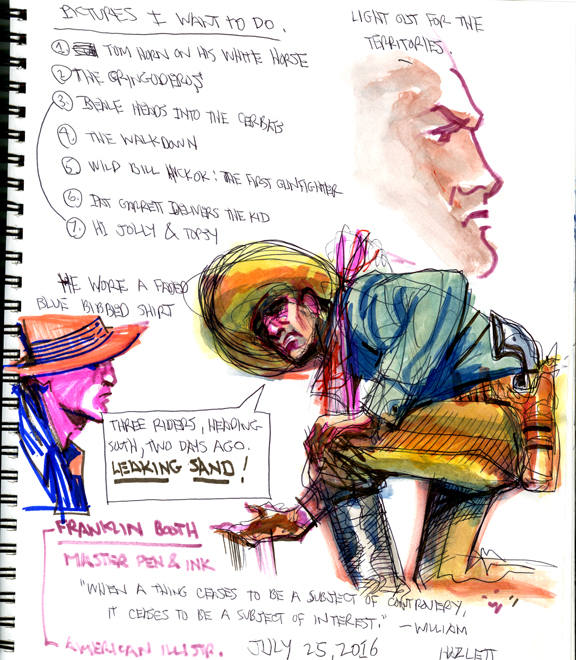 PICTURES I WANT TO DO.
① TOM HORN ON HIS WHITE HORSE
② THE GRINGODEROS
③ BEALE HEADS INTO THE CERBATS
④ THE WALKDOWN
⑤ WILD BILL HICKOK: THE FIRST GUNFIGHTER
⑥ PAT GARRETT DELIVERS THE KID
⑦ HI JOLLY & TOPSY
LIGHT OUT FOR THE
TERRITORIES.
HE WORE A FADED
BLUE BIBBED SHIRT
THREE RIDERS, HEADING
SOUTH, TWO DAYS AGO.
LEAKING SAND!
FRANKLIN BOOTH
MASTER PEN & INK
AMERICAN ILLSTR.
"WHEN A THING CEASES TO BE A SUBJECT OF CONTROVERY,
IT CEASES TO BE A SUBJECT OF INTEREST."
—WILLIAM
HAZLETT
JULY 25, 2016